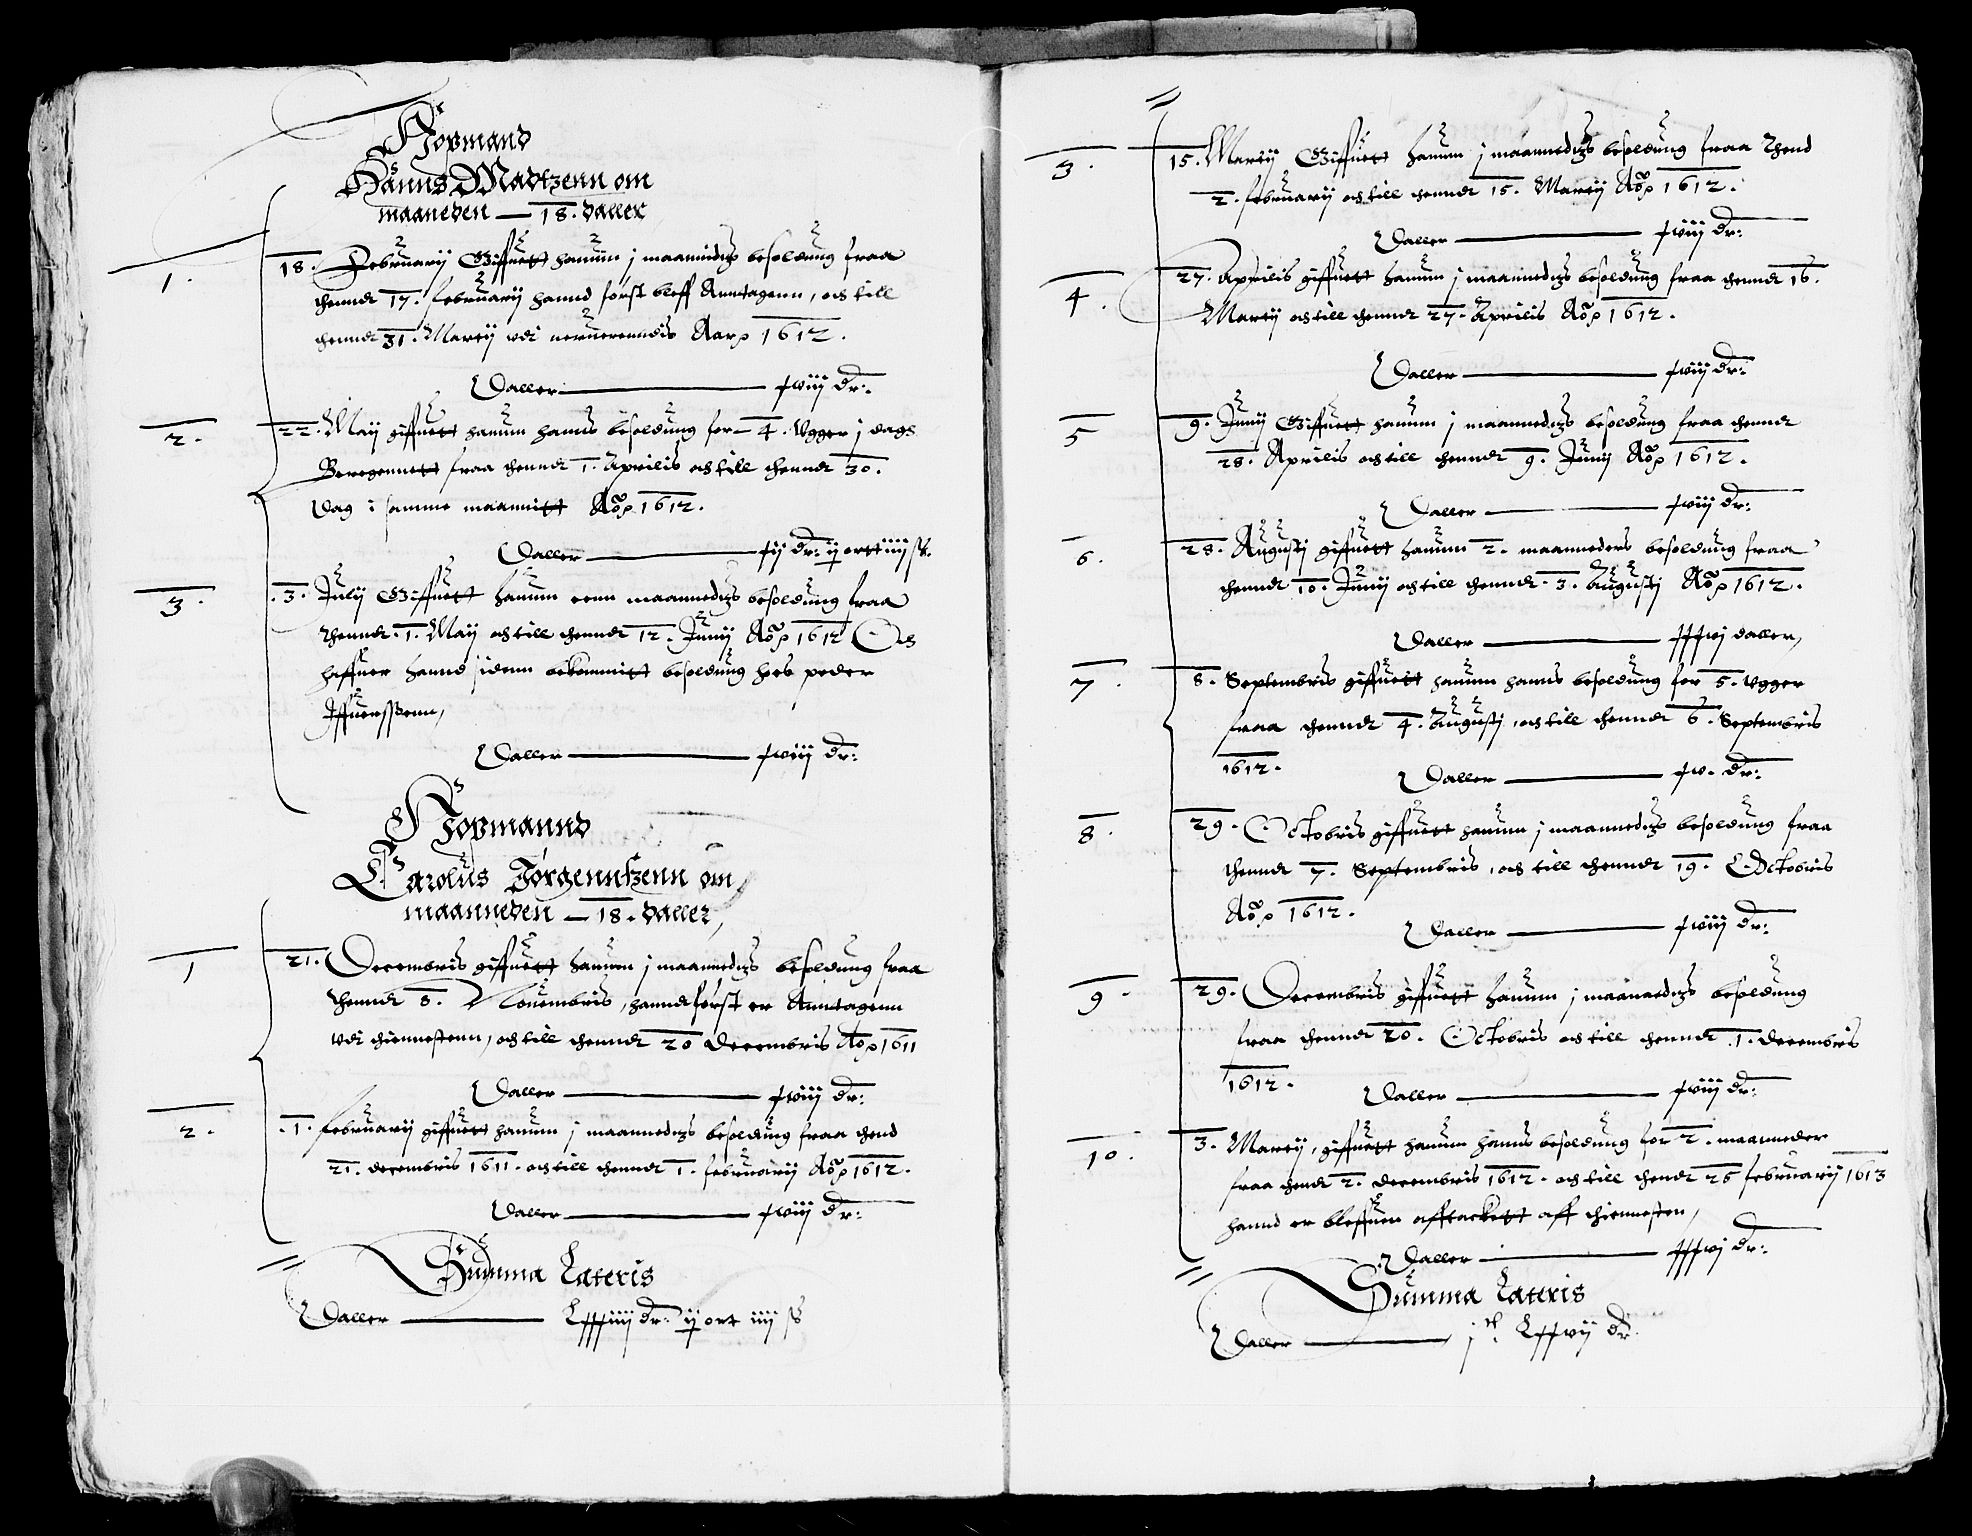 Høpmand
Hanns Madtzenn om
maaneden — 18. daller
1.
18. Februarij Giffuett hanum j maannidtz besoldung fraa
thenndt 17. Februarij hannd først bleff Anntagenn, och till
thenndt 31. Martij vdi neruerenndis Aar 1612.
Daller — xviij dr:
2.
22. Maij giffuett hanum hanns besoldung for 4. Vgger j dags
Beregennett fraa thenndt 1. Aprilis och till thenndt 30.
Dag i samme maannitt Ao 1612.
Daller — xij dr: ij ortt iiij ß.
3.
3. Julij Giffuett hanum eenn maannedtzs besoldung fraa
thenndt 1. Maij och till thenndt 12. Junij Ao 1612 Och
haffuer hannd sidenn bekommitt besoldung hoes peder
Iffuerssøenn,
Daller — xviij dr:
Høpmannd
Carolus Jørgenntzenn om
maanneden — 18. daller,
1
21. Decembris giffuett hanum j maannedtzs besoldung fraa
thenndt 8. Nouembris, hanndt først er Anntagenn
vdi thiennestenn, och till thenndt 20 Decembris Ao 1611
Daller — xviij dr:
2.
1. Februarij giffuett hanum j maannedtzs besoldung fraa thend
21. decembris 1611. och till thenndt 1. februarij Ao 1612.
Daller — xviij dr:
Summa Lateris
Daller — Lxxxiiij dr: ij ort iiij ß
3.
15. Martij Giffuett hanum j maannedtzs besoldung fraa thend
2. februarij och till thenndt 15. Martij Ao 1612.
Daller — xviij dr:
4.
27. Aprilis giffuett hanum j maannedtzs besoldung fraa thenndt 16.
Martij och till thenndt 27. Aprilis Ao 1612.
Daller — xviij dr:
5
9. Junij Giffuett hanum j maannedtzs besoldung fraa thenndt
28. Aprilis och till thenndt 9. Junij Ao 1612.
Daller — xviij dr:
6.
28. Augustj giffuett hanum 2. maanneders besoldung fraa
thenndt 10. Junij och till thenndt 3. Augustj Ao 1612.
Daller — xxxvj daller,
7.
8. Septembris giffuett hanum hanns besoldung for 5. Vgger
fraa thenndt 4. Augustj, och till thenndt 6. Septembris
1612.
Daller — xv. dr:
8.
29. Octobris giffuett hanum j maannedtzs besoldung fraa
thenndt 7. Septembris, och till thenndt 19. Octobris
Ao 1612.
Daller — xviij dr:
9.
29. Decembris giffuett hanum j maannedtzs besoldung
fraa thenndt 20. Octobris och till thenndt 1. decembris
1612.
Daller — xviij dr:
10.
3. Martij, giffuett hanum hanns besoldung for 2. maanneder
fraa thendt 2. decembris 1612. och till thendt 26 februarij 1613
hannd er bleffuen afftackett aff thiennesten,
Daller — xxxvj dr:
Summa Lateris
Daller — jc Lxxvij dr.